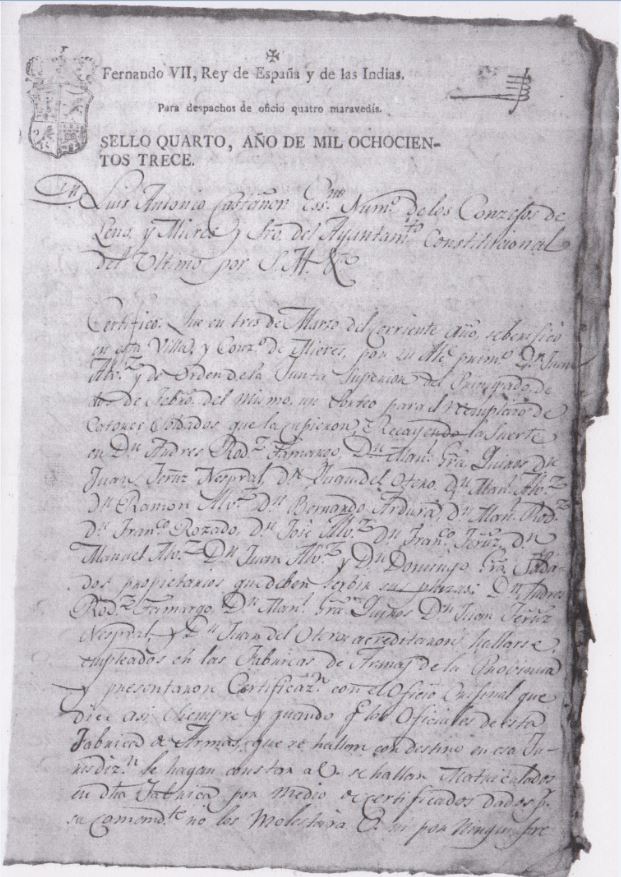 Fernando VII, Rey de España y de las Indias.
Para despachos de oficio quatro maravedis.
SELLO QUARTO, AÑO DE MIL OCHOCIEN-
TOS TRECE.
Luis Antonio Castañer Essno Numo de los Conzejos de
Lena, y Mieres y Sro. del Ayuntamto Constitucional
del Ultimo por S. M. &
Certifico: Que en tres de Marzo del corriente año, se
en esta Villa, y Conzo de Mieres, por su Alce primo Dn Juan
Alvz y de orden de la Junta Superior del
dos de Febro del Mismo, un sorteo para el reemplazo de
Catorce Soldados que la cupieron, Recayendo la suerte
en Dn Andres Rodz Famargo, Dn Manl Gra Quiros Dn
Juan Fernz Nespral, Dn Juan del Otero, Dn Manl Alvz
Dn Ramon Alvz Dn Bernardo Ardura, Dn Manl Rodz
Dn Franco Rozado, Dn Jose Alvz Dn Franco Fernz Dn
Manuel Alvz Dn Juan Alvz y Dn Domingo Gra
dos propietarios que deben serbir su plaza: Dn Andres
Rodz Famargo Dn Manl Gra Quiros Dn Juan Fernz
Nespral, y Dn Juan del Otero acreditaron hallarse
empleados en las Fabricas de Armas de la Provincia
y presentaron Certificazn con el Oficio Orijinal que
dice asi: Siempre y quando q las Oficiales de esta
Fabrica de Armas, que se hallan con destino en esa Ju-
risdizn le hagan constar a V. se hallan Matriculados
en dha Fabrica, por medio de certificados dados pr
su Comandte no los Molestara V. ni por ningun pre